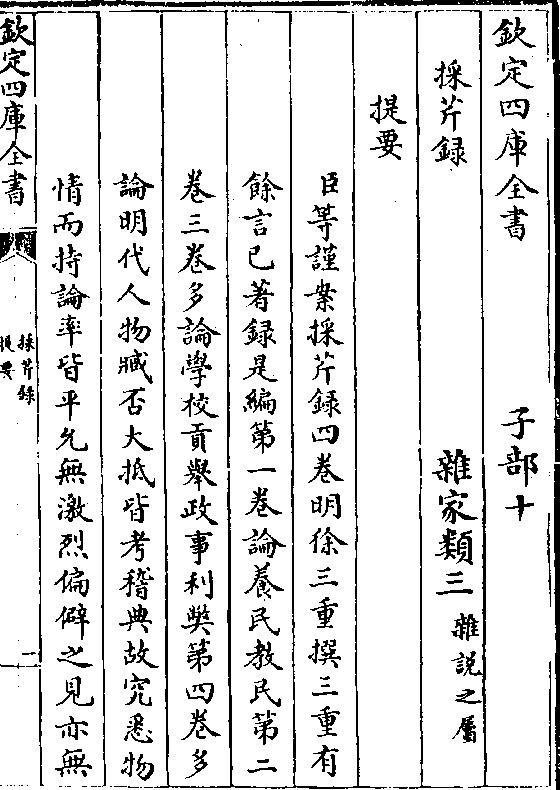 欽定四庫全書　子部十
採芹録　雜家類三雜說之屬
提要
臣等謹案採芹録四卷明徐三重撰三重有
餘言已著録是編第一卷論養民教民第二
卷三卷多論學校貢舉政事利獘第四卷多
論明代人物臧否大抵皆考稽典故究悉物
情而持論率皆平允無激烈偏僻之見亦無
欽定四庫全書
採芹録
提要
一